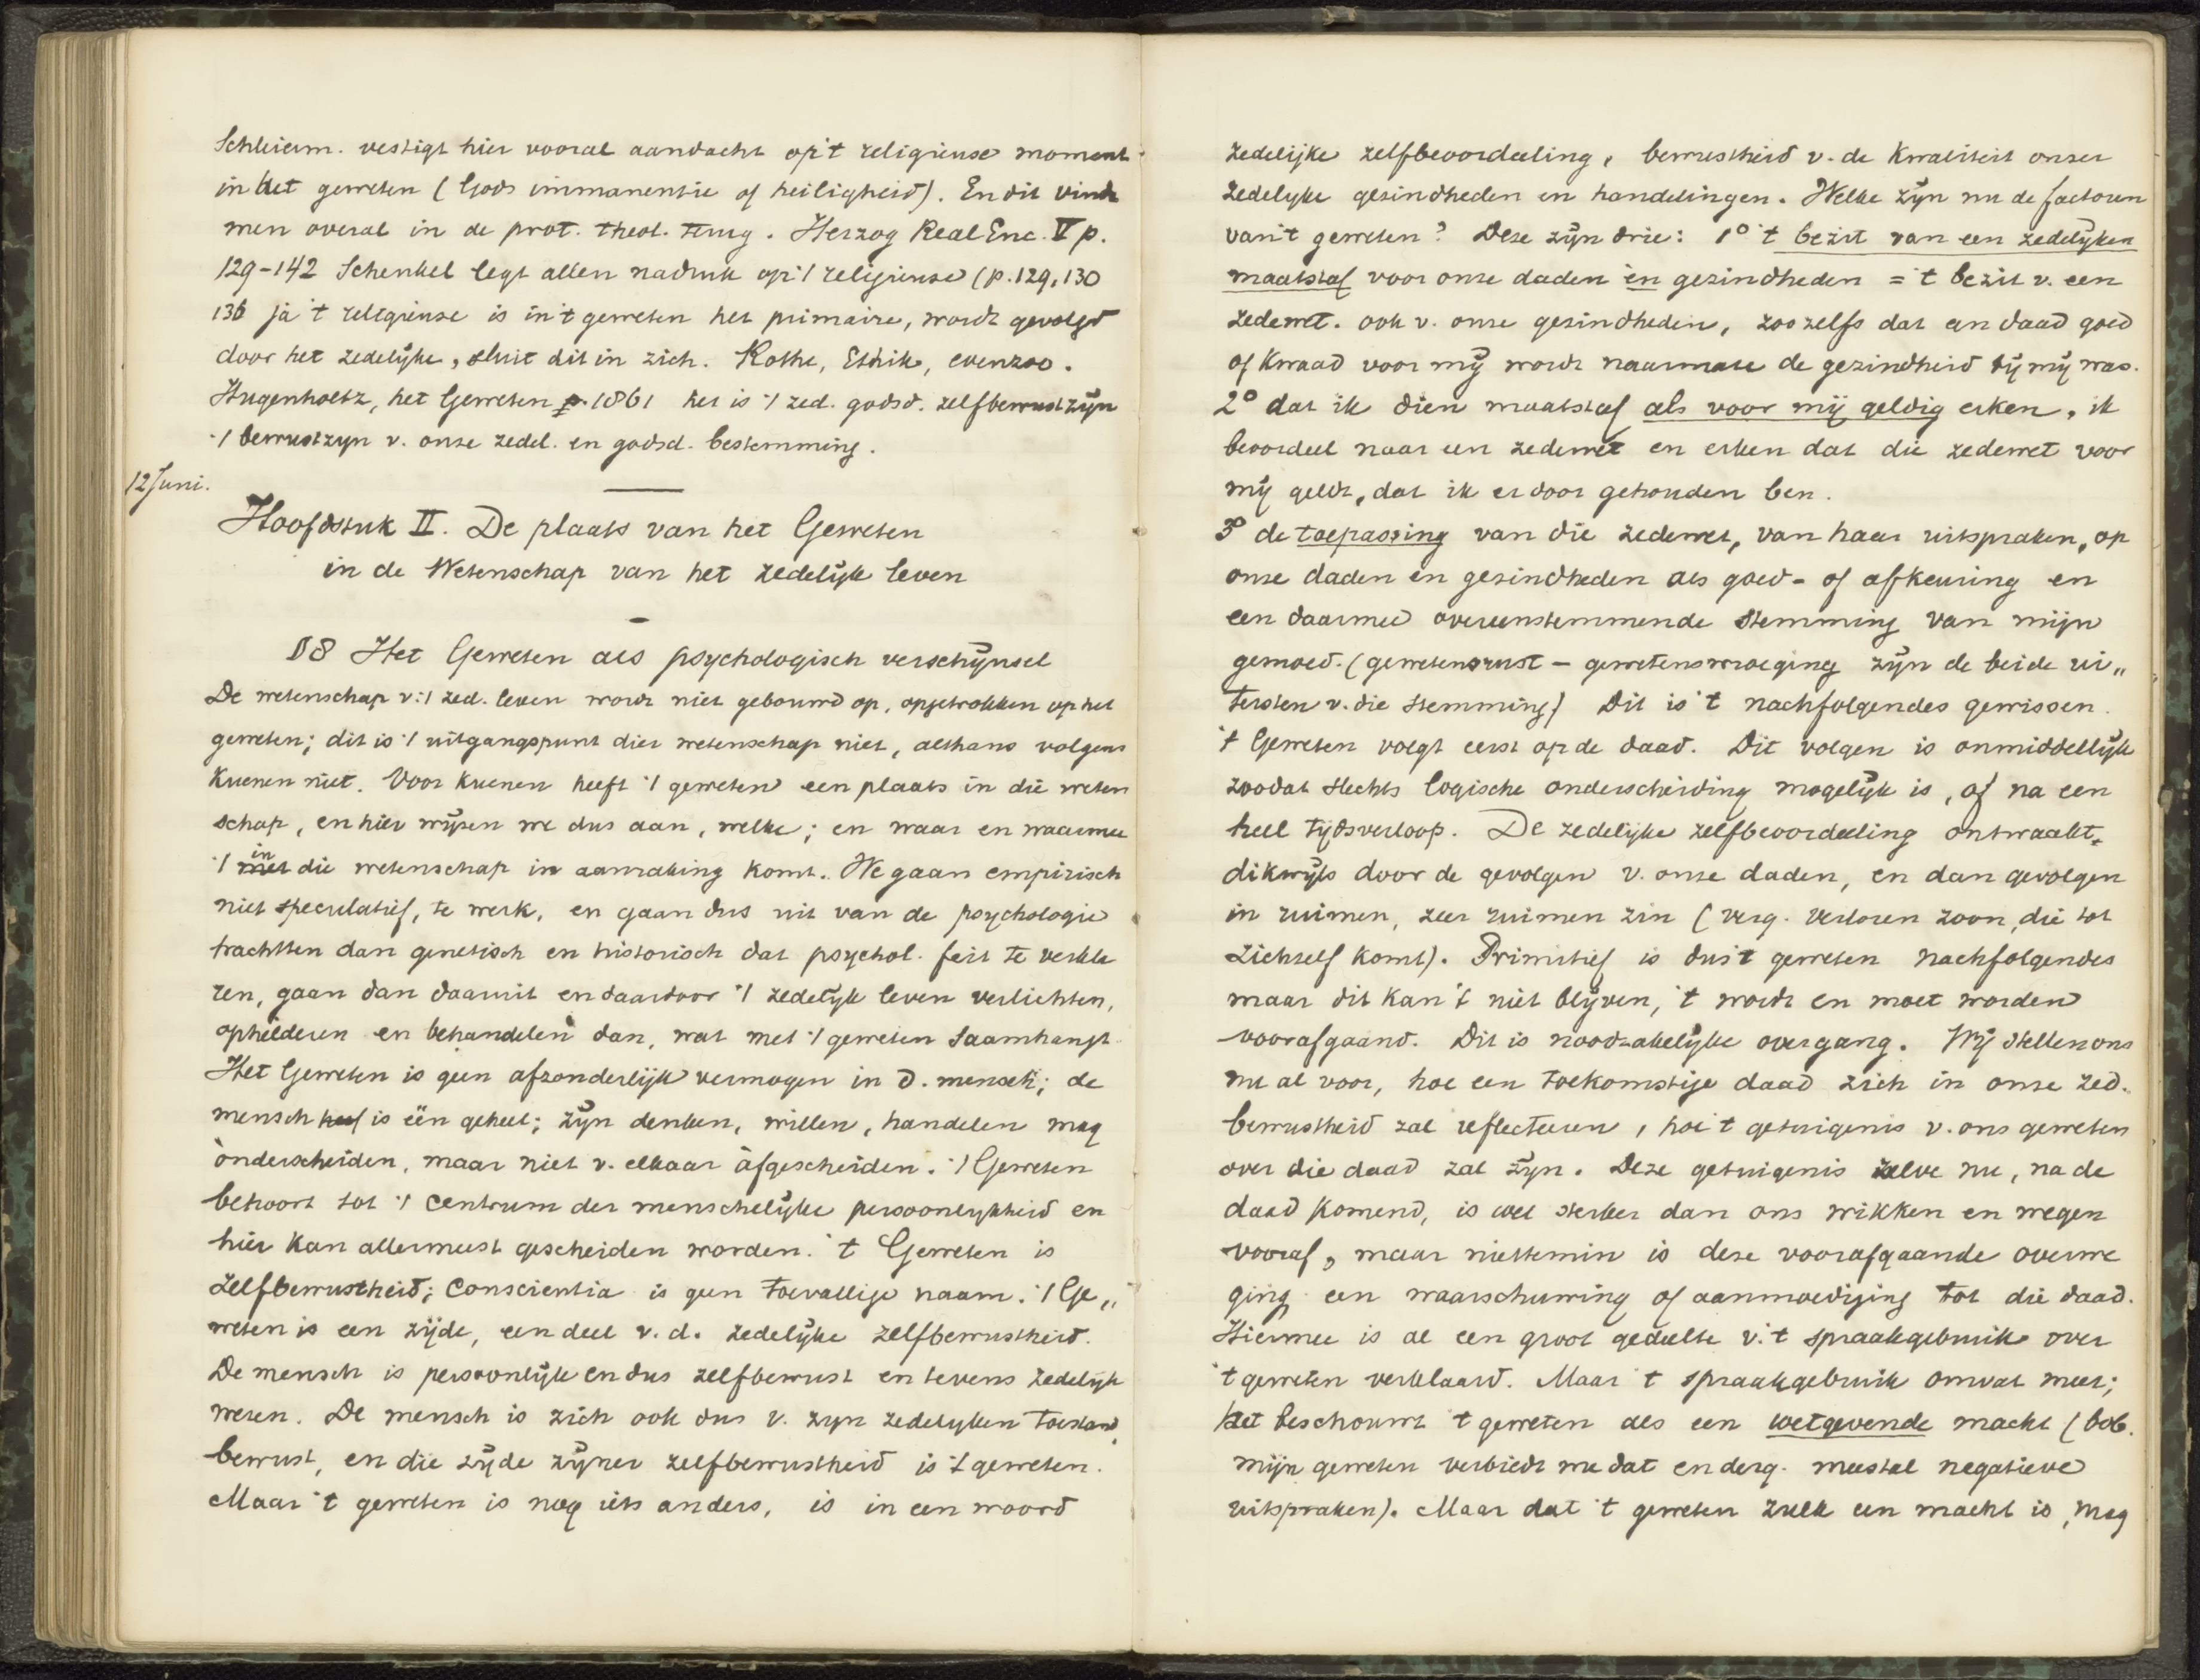 Schleierm. vestigt hier vooral aandacht op 't religieuse moment
in het geweten (Gods immanentie of heiligheid). En dit vindt
men overal in de prot. theol. terug. Herzog Real Enc. V p.
129-142 Schenkel legt allen nadruk op 't religieuse (p. 129, 130
136 ja 't religieuse is in 't geweten het primaire, wordt gevolgd
door het zedelijke, sluit dit in zich. Rothe, Ethik, evenzoo.
Hugenholtz, het Geweten p. 1861 het is 't zed. godsd. zelfbewustzijn
't bewustzijn v. onze zedel. en godsd. bestemming.
12 Juni.
Hoofdstuk II. De plaats van het Geweten
in de Wetenschap van het zedelijk leven
§ 8 Het Geweten als psychologisch verschijnsel
De wetenschap v. 't zed. leven wordt niet gebouwd op, opgetrokken op het
geweten; dit is 't uitgangspunt dier wetenschap niet, althans volgens
Kuenen niet. Voor Kuenen heeft 't geweten een plaats in die weten
schap, en hier wijzen we dus aan, welke; en waar en waarmee
't met in die wetenschap in aanraking komt. We gaan empirisch
niet speculatief, te werk, en gaan dus uit van de psychologie
trachtten dan genetisch en historisch dat psychol. feit te verkla
ren, gaan dan daaruit en daardoor 't zedelijk leven verlichten,
ophelderen en behandelen dan, wat met 't geweten saamhangt.
Het Geweten is geen afzonderlijk vermogen in d. mensch; de
mensch heef is één geheel; zijn denken, willen, handelen mag
ònderscheiden, maar niet v. elkaar àfgescheiden. 't Geweten
behoort tot 't centrum der menschelijke persoonlijkheid en
hier kan allermeest gescheiden worden. 't Geweten is
zelfbewustheid; conscientia is geen toevallige naam. 't Ge„
weten is een zijde, een deel v. d. zedelijke zelfbewustheid.
De mensch is persoonlijk en dus zelfbewust en tevens zedelijk
wezen. De mensch is zich ook dus v. zijn zedelijken toestand
bewust, en die zijde zijner zelfbewustheid is 't geweten.
Maar 't geweten is nog iets anders, is in een woord
zedelijke zelfbeoordeeling, bewustheid v. de kwaliteit onzer
zedelijke gezindheden en handelingen. Welke zijn nu de factoren
van 't geweten? Deze zijn drie: 1° 't bezit van een zedelijken
maatstaf voor onze daden èn gezindheden = 't bezit v. een
zedewet. ook v. onze gezindheden, zoo zelfs dat een daad goed
of kwaad voor mij wordt naarmate de gezindheid bij mij was.
2° dat ik dien maatstaf als voor mij geldig erken, ik
beoordeel naar een zedewet en erken dat die zedewet voor
mij geldt, dat ik er door gehouden ben.
3° de toepassing van die zedewet, van haar uitspraken, op
onze daden en gezindheden als goed- of afkeuring en
een daarmee overeenstemmende stemming van mijn
gemoed. (gewetensrust – gewetenswroeging zijn de beide ui„
tersten v. die stemming) Dit is 't nachfolgendes gewissen.
't Geweten volgt eerst op de daad. Dit volgen is onmiddellijk
zoodat slechts logische onderscheiding mogelijk is, of na een
heel tijdsverloop. De zedelijke zelfbeoordeeling ontwaakt
dikwijls door de gevolgen v. onze daden, en dan gevolgen
in ruimen, zeer ruimen zin (verg. verloren zoon, die tot
zichzelf komt). Primitief is dus 't geweten nachfolgendes
maar dit kan 't niet blijven, 't wordt en moet worden
voorafgaand. Dit is noodzakelijke overgang. Wij stellen ons
nu al voor, hoe een toekomstige daad zich in onze zed.
bewustheid zal reflecteeren, hoe 't getuigenis v. ons geweten
over die daad zal zijn. Deze getuigenis zelve nu, na de
daad komend, is wel sterker dan ons wikken en wegen
vooraf, maar niettemin is deze voorafgaande overwe
ging een waarschuwing of aanmoediging tot die daad.
Hiermee is al een groot gedeelte v. 't spraakgebruik over
't geweten verklaard. Maar 't spraakgebruik omvat meer;
het beschouwt 't geweten als een wetgevende macht (bvb.
mijn geweten verbiedt me dat en derg. meestal negatieve
uitspraken). Maar dat 't geweten zulk een macht is, mag